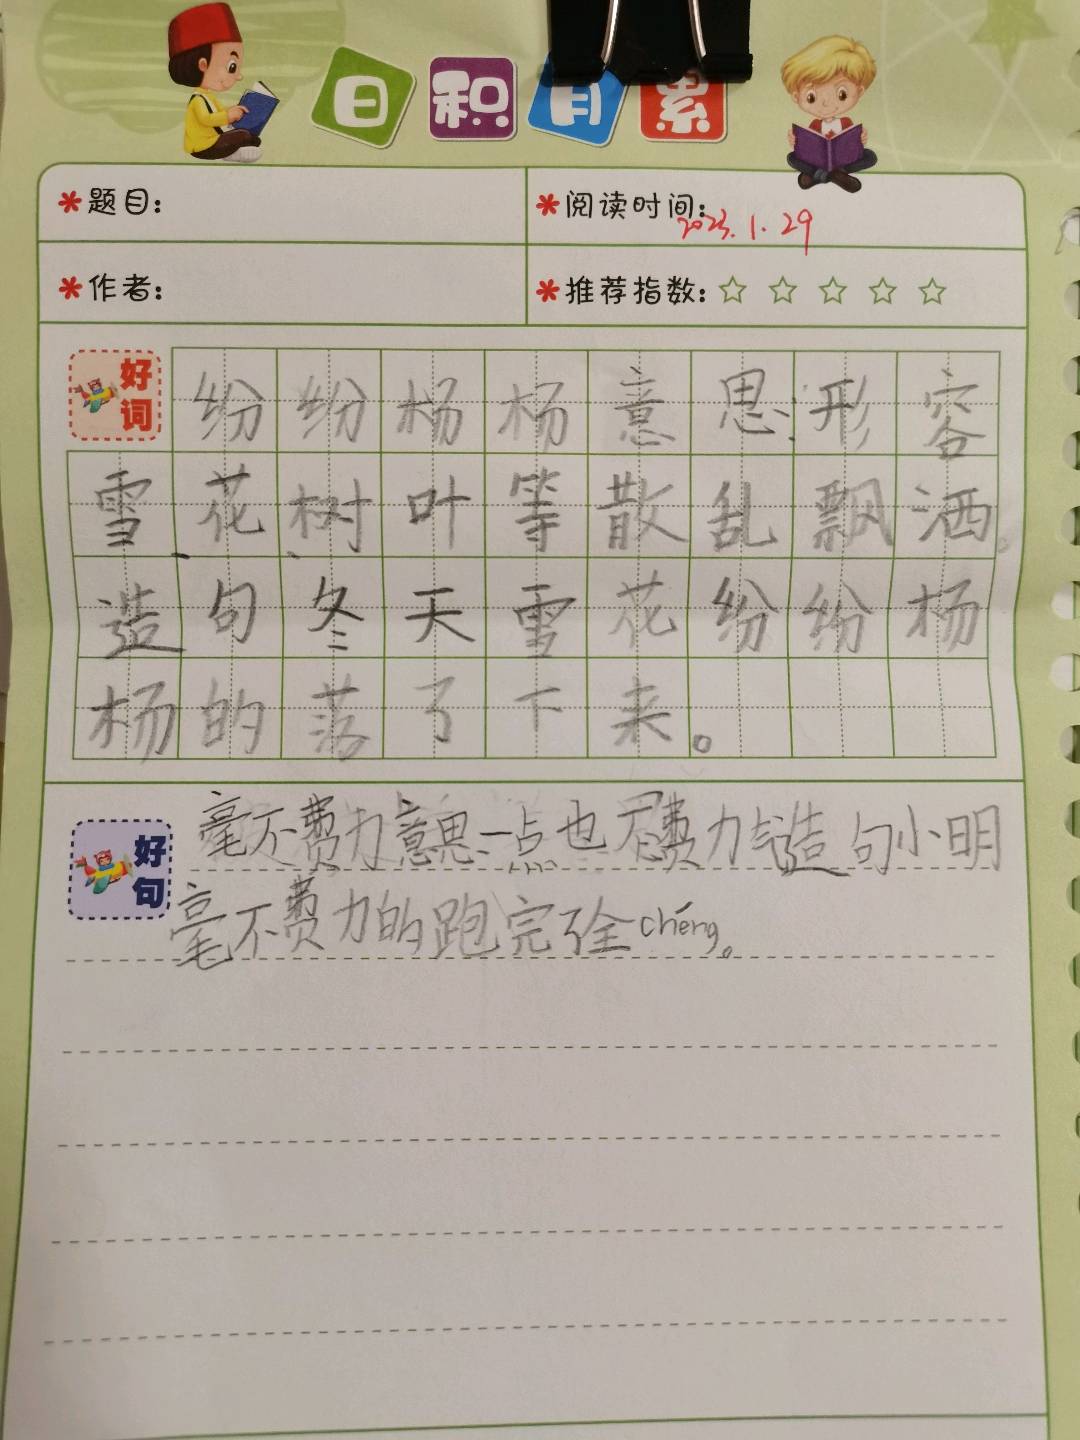 日积月累
*题目:
*阅读时间: 2023.1.29
*作者:
*推荐指数:☆☆☆☆☆
好词
纷纷杨杨意思:形容
雪花、树叶等散乱飘洒。
造句冬天雪花纷纷杨
杨的落了下来。
好句
毫不费力意思一点也不费力气造句小明
毫不费力的跑完了全chéng。